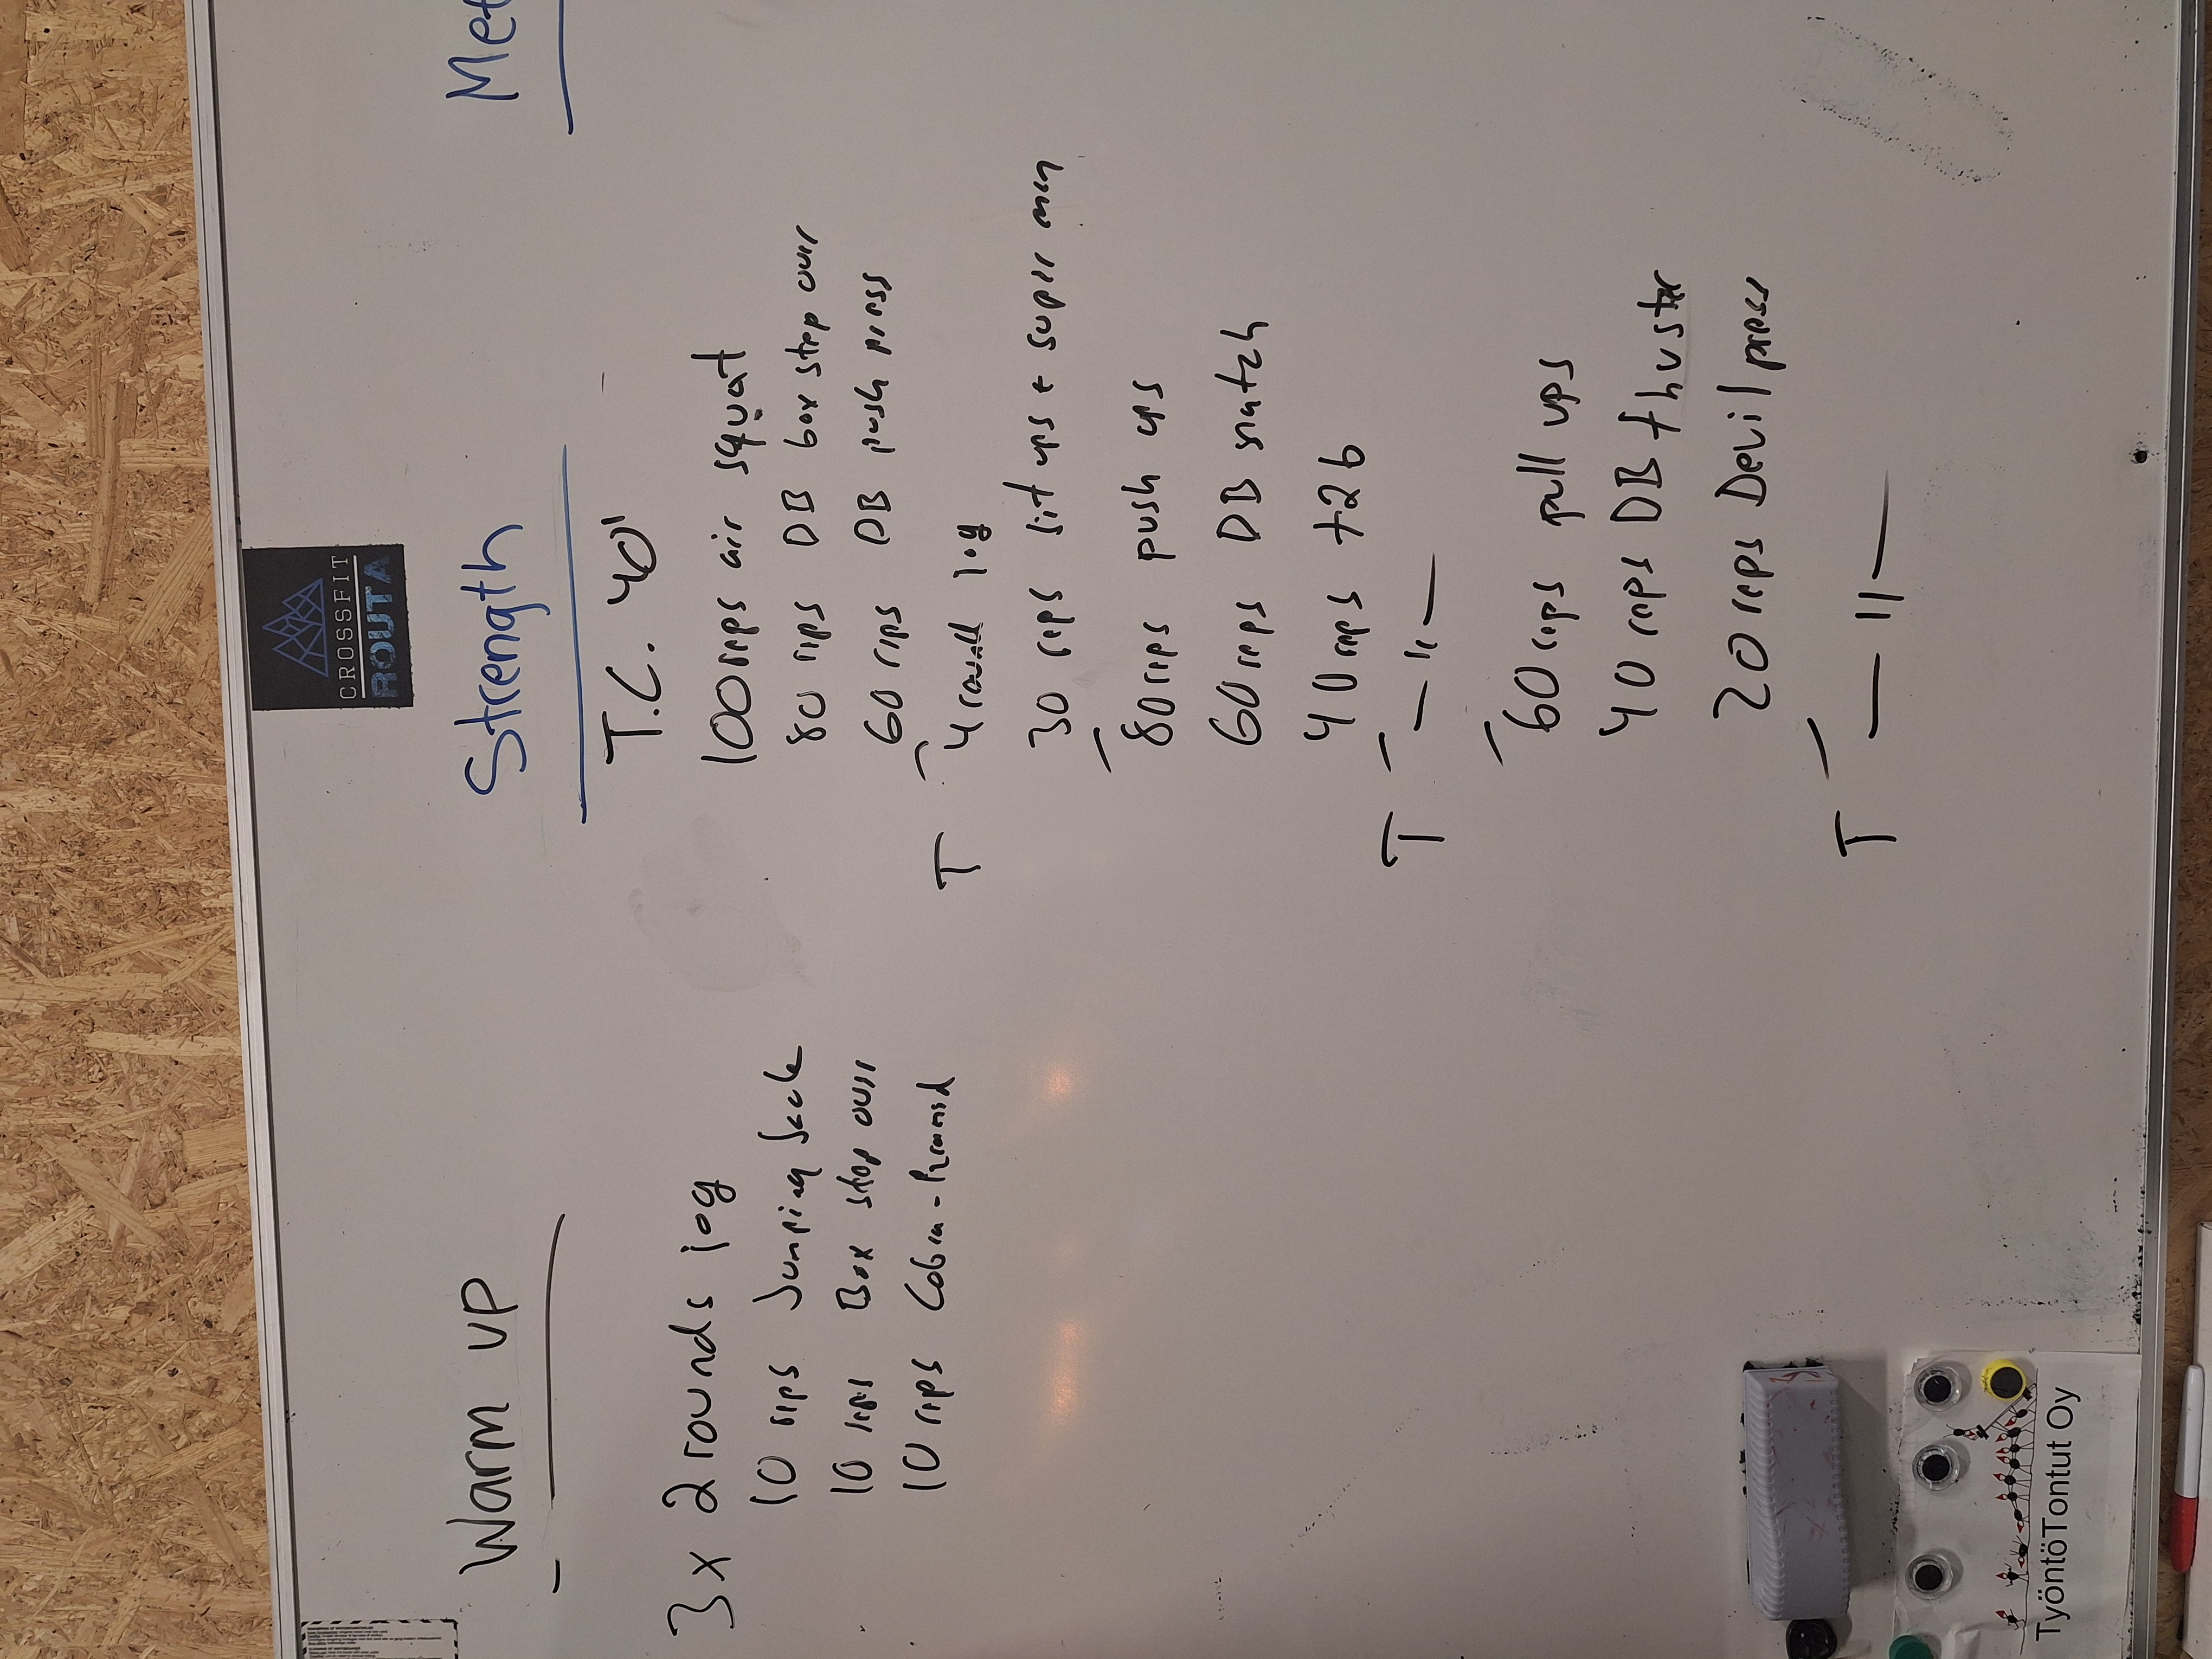 CROSSFIT
ROUTA
Warm up
3 x 2 rounds jog
10 reps Jumping Jack
10 reps Box step over
10 reps Cobra-Pyramid
Strength
T.C. 40'
100 reps air squat
80 reps DB box step over
60 reps DB push press
T 4 round jog
30 reps sit ups + super man
80 reps push ups
60 reps DB snatch
40 reps t2b
T — 11 —
60 reps pull ups
40 reps DB thuster
20 reps Devil press
T — 11 —
Met
TyöntöTontut Oy